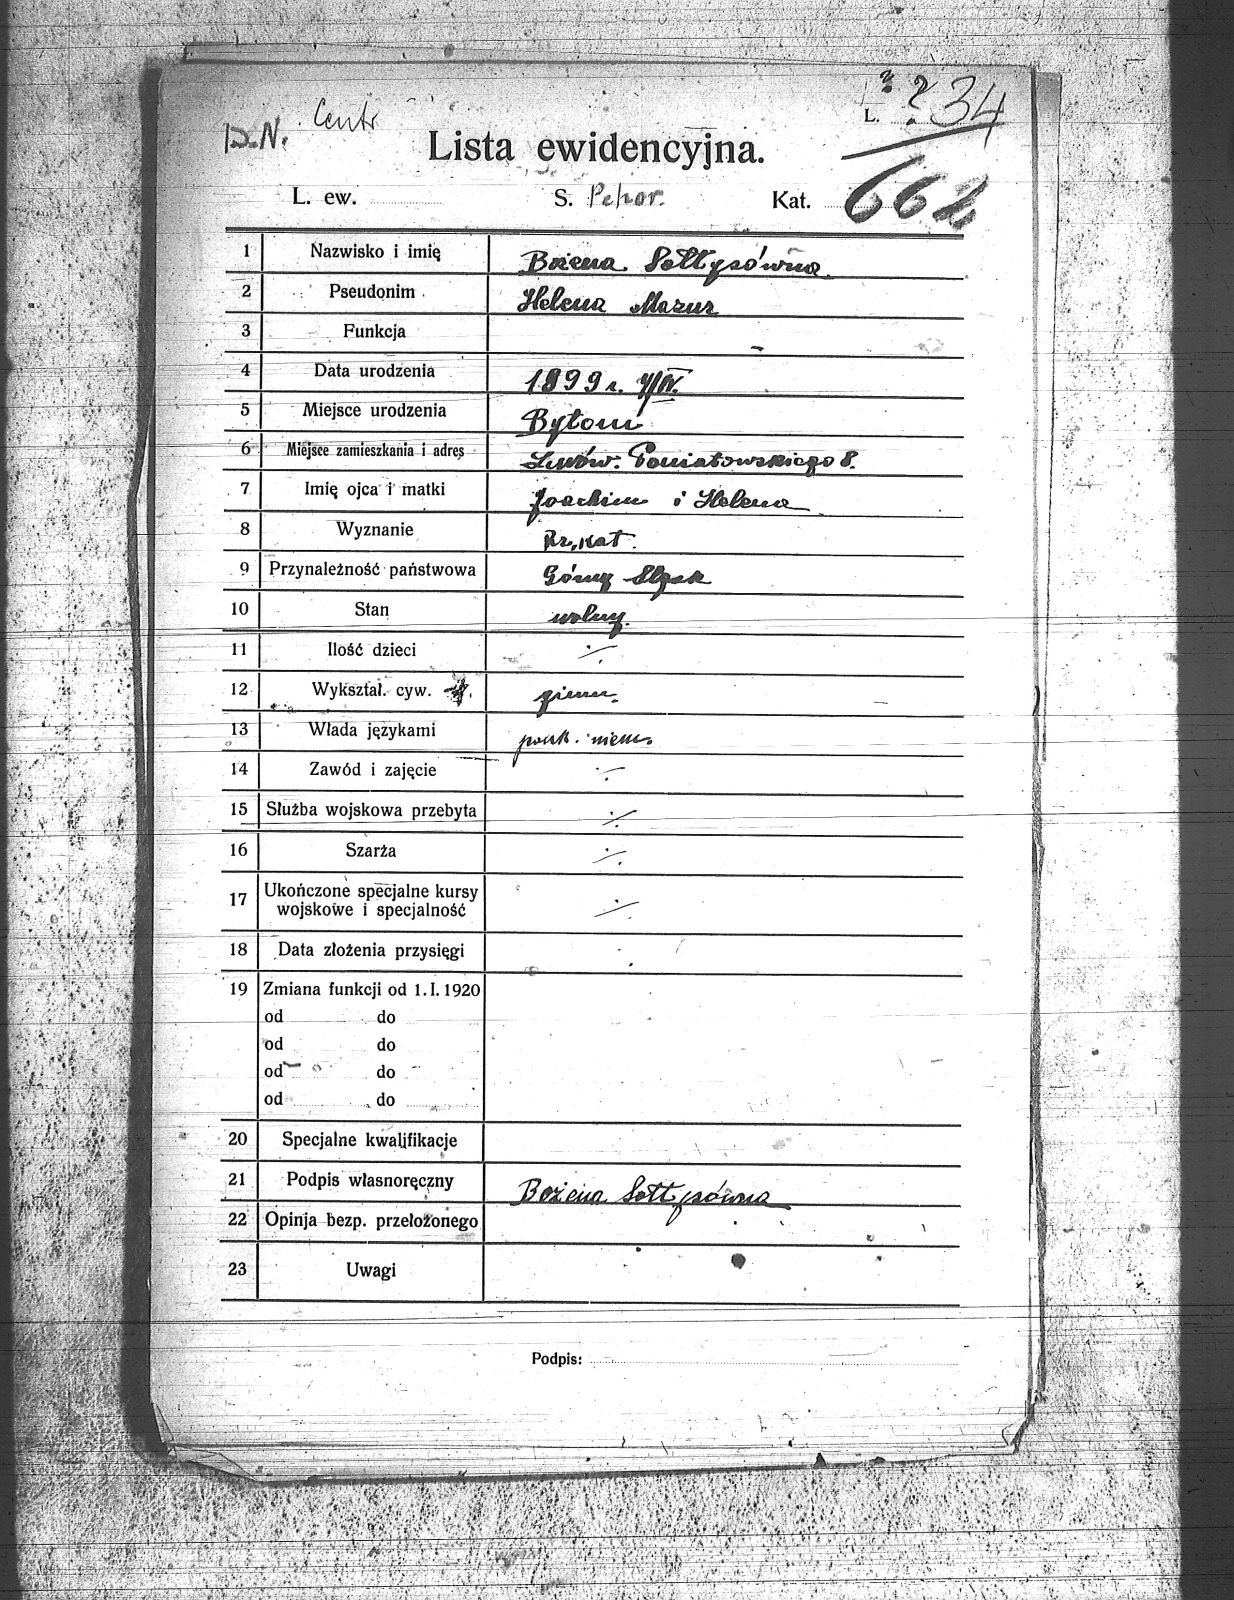 D.N. Centr
L. ? 34
Lista ewidencyjna.
662
L. ew. S. Kat.
1 Nazwisko i imię Bożena Sołtysówna
2 Pseudonim Helena Mazur
3 Funkcja
4 Data urodzenia 1899 r.
5 Miejsce urodzenia Bytom
6 Miejsce zamieszkania i adres Lwów. Poniatowskiego 8.
7 Imię ojca i matki Joachim i Helena
8 Wyznanie Rz. kat.
9 Przynależność państwowa Górny Śląsk
10 Stan wolny.
11 Ilość dzieci ·/·
12 Wykształ. cyw. gimn.
13 Włada językami polsk. niem.
14 Zawód i zajęcie ·/·
15 Służba wojskowa przebyta ·/·
16 Szarża ·/·
17 Ukończone specjalne kursy
wojskowe i specjalność ·/·
18 Data złożenia przysięgi
19 Zmiana funkcji od 1. I. 1920
od do
od do
od do
od do
20 Specjalne kwalifikacje
21 Podpis własnoręczny Bożena Sołtysówna
22 Opinja bezp. przełożonego
23 Uwagi
Podpis: